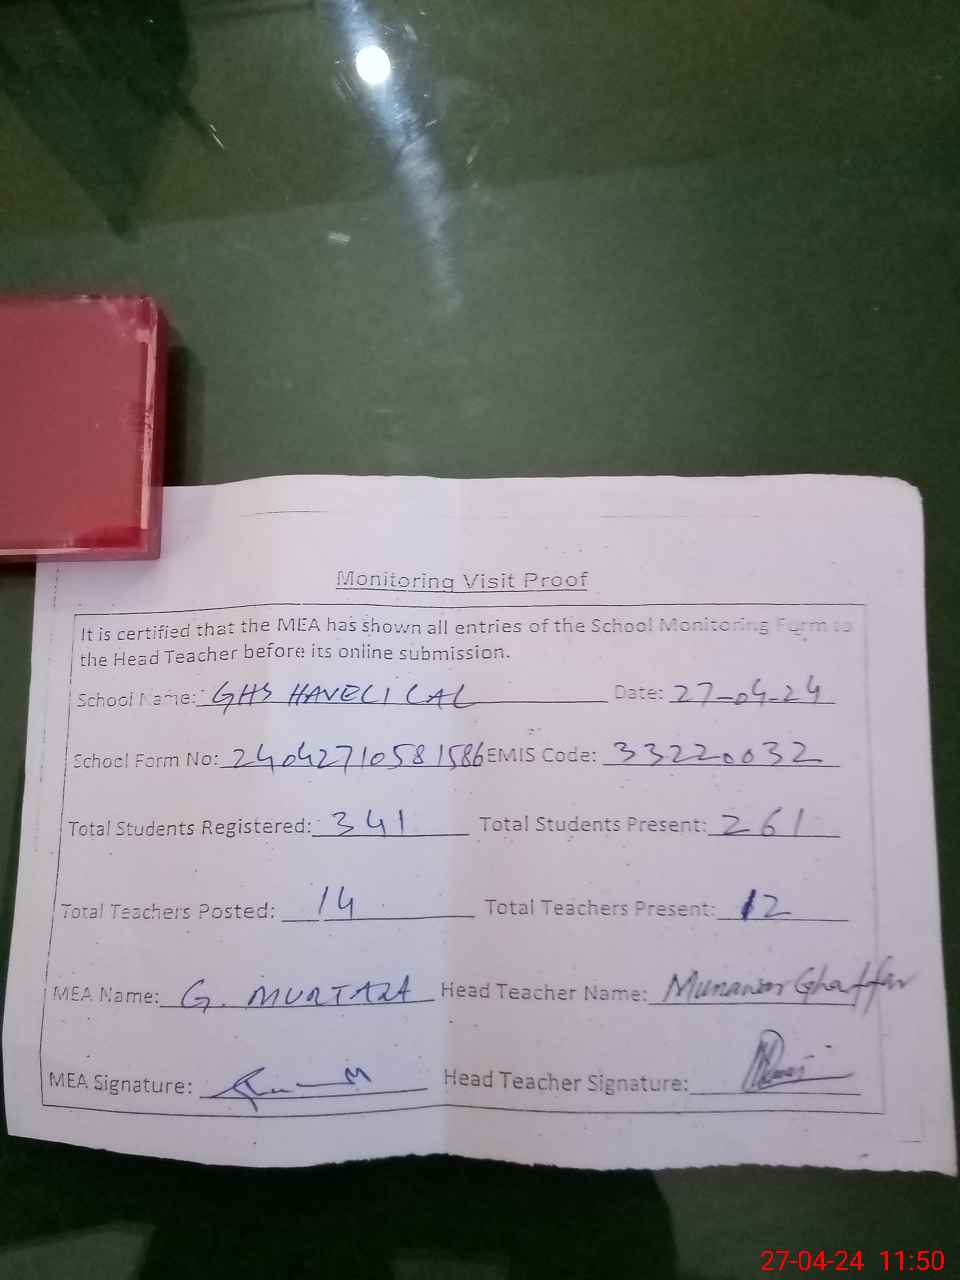 Monitoring Visit Proof
It is certified that the MEA has shown all entries of the School Monitoring Form to
the Head Teacher before its online submission.
School Name: GHS HAVELI LAL Date: 27-04-24
School Form No: 24042710581586 EMIS Code: 33220032
Total Students Registered: 341 Total Students Present: 261
Total Teachers Posted: 14 Total Teachers Present: 12
MEA Name: G. MURTAZA Head Teacher Name: Munawar Ghaffar
MEA Signature: Head Teacher Signature:
27-04-24 11:50